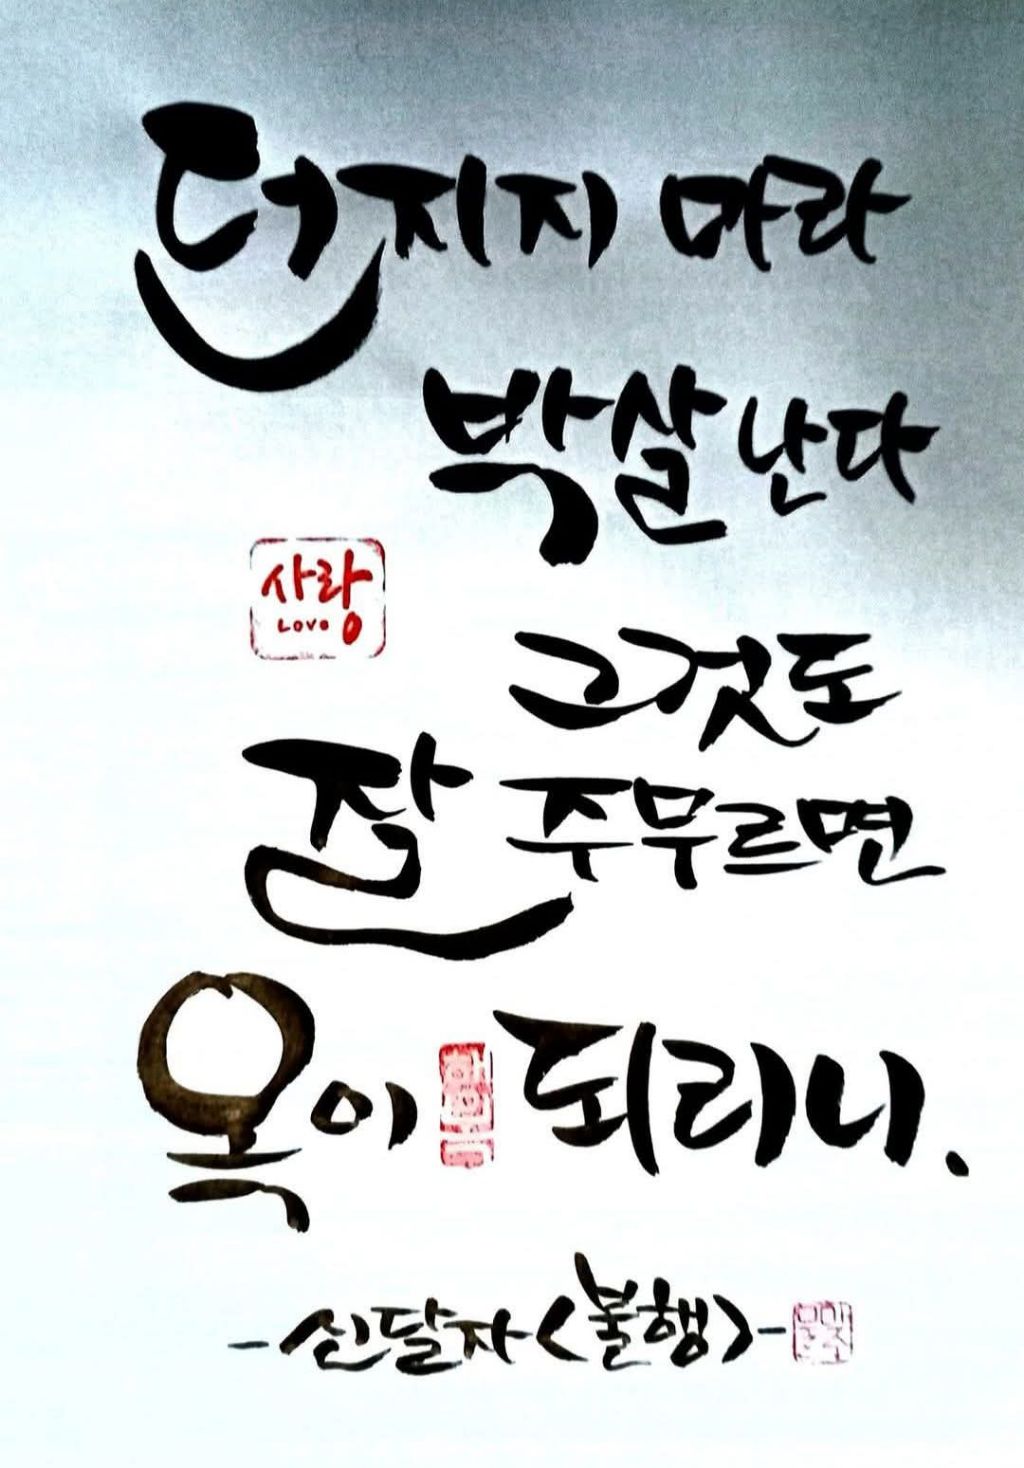 던지지 마라
박살 난다
사랑
LOVE
그것도
잘 주무르면
옥이 되리니.
-신달자<불행>-